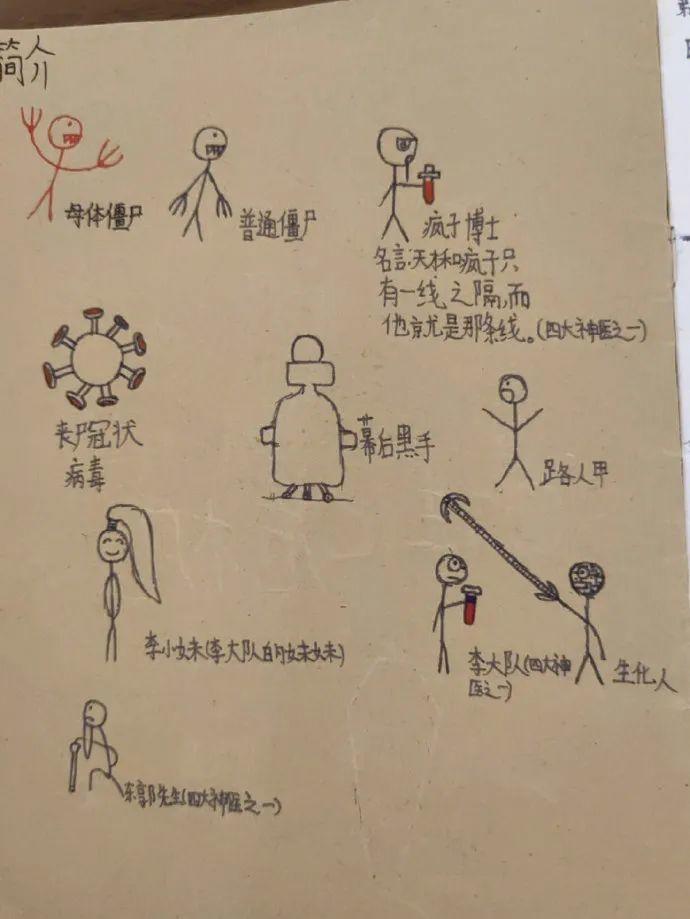 简介
母体僵尸
普通僵尸
疯子博士
名言:天才和疯子只
有一线之隔,而
他就是那条线。(四大神医之一)
丧尸冠状
病毒
幕后黑手
路人甲
李小妹(李大队的妹妹)
李大队(四大神
医之一)
生化人
东郭先生(四大神医之一)